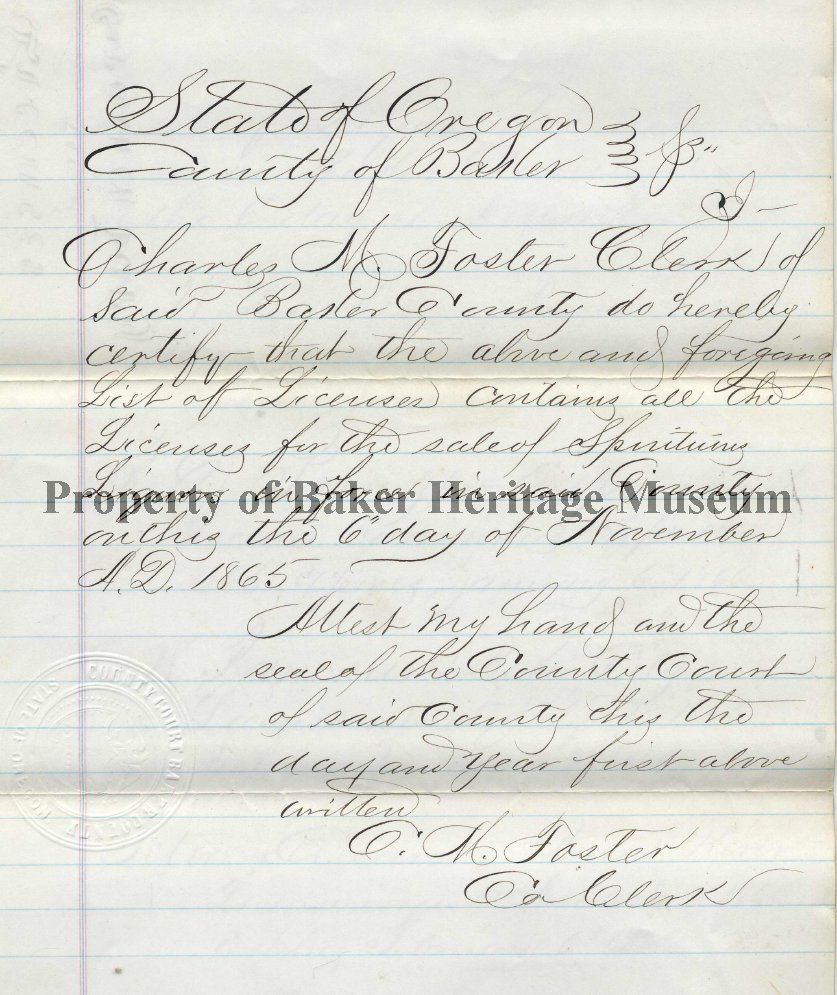 State of Oregon } ss
County of Baker
I
Charles M. Foster Clerk of
said Baker County do hereby
certify that the above and foregoing
List of Licenses contains all the
Licenses for the sale of Spirituous
Liquors in force in said County
Property of Baker Heritage Museum
on this the 6" day of November
A.D. 1865
Attest my hand and the
seal of the County Court
of said County this the
day and year first above
written
C. M. Foster
Co Clerk
COUNTY COURT BAKER COUNTY
STATE OF OREGON